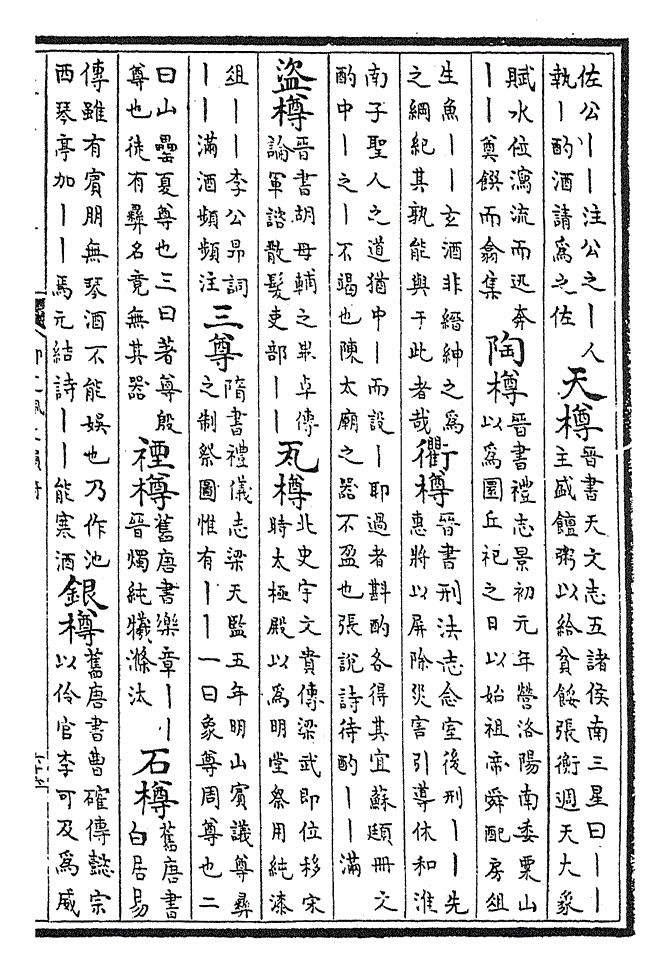 佐公丨丨注公之丨人
執丨酌酒請為之佐
天樽
晉書天文志五諸侯南三星曰丨丨
主盛饘粥以給貧餒張衡週天大象
賦水位瀉流而迅奔
丨丨奠饌而翕集
陶樽
晉書禮志景初元年營洛陽南委粟山
以為圜丘祀之日以始祖帝舜配房俎
生魚丨丨玄酒非縉紳之為
之綱紀其孰能與于此者哉
衢樽
晉書刑法志念室後刑丨丨先
惠將以屏除災害引導休和淮
南子聖人之道猶中丨而設丨耶過者斟酌各得其宜蘇頲冊文
酌中丨之丨不竭也陳太廟之器不盈也張說詩待酌丨丨滿
盜樽
晉書胡母輔之畢卓傳
論軍諮散髮吏部丨丨
瓦樽
北史宇文貴傳梁武即位移宋
時太極殿以為明堂祭用純漆
俎丨丨李公昴詞
丨丨滿酒頻頻注
三尊
隋書禮儀志梁天監五年明山賓議尊彝
之制祭圖惟有丨丨一曰象尊周尊也二
曰山罍夏尊也三曰著尊殷
尊也徒有彝名竟無其器
禋樽
舊唐書樂章丨丨
晉燭純犧滌汰
石樽
舊唐書
白居易
傳雖有賓朋無琴酒不能娛也乃作池
西琴亭加丨丨焉元結詩丨丨能寒酒
銀樽
舊唐書曹確傳懿宗
以伶官李可及為威